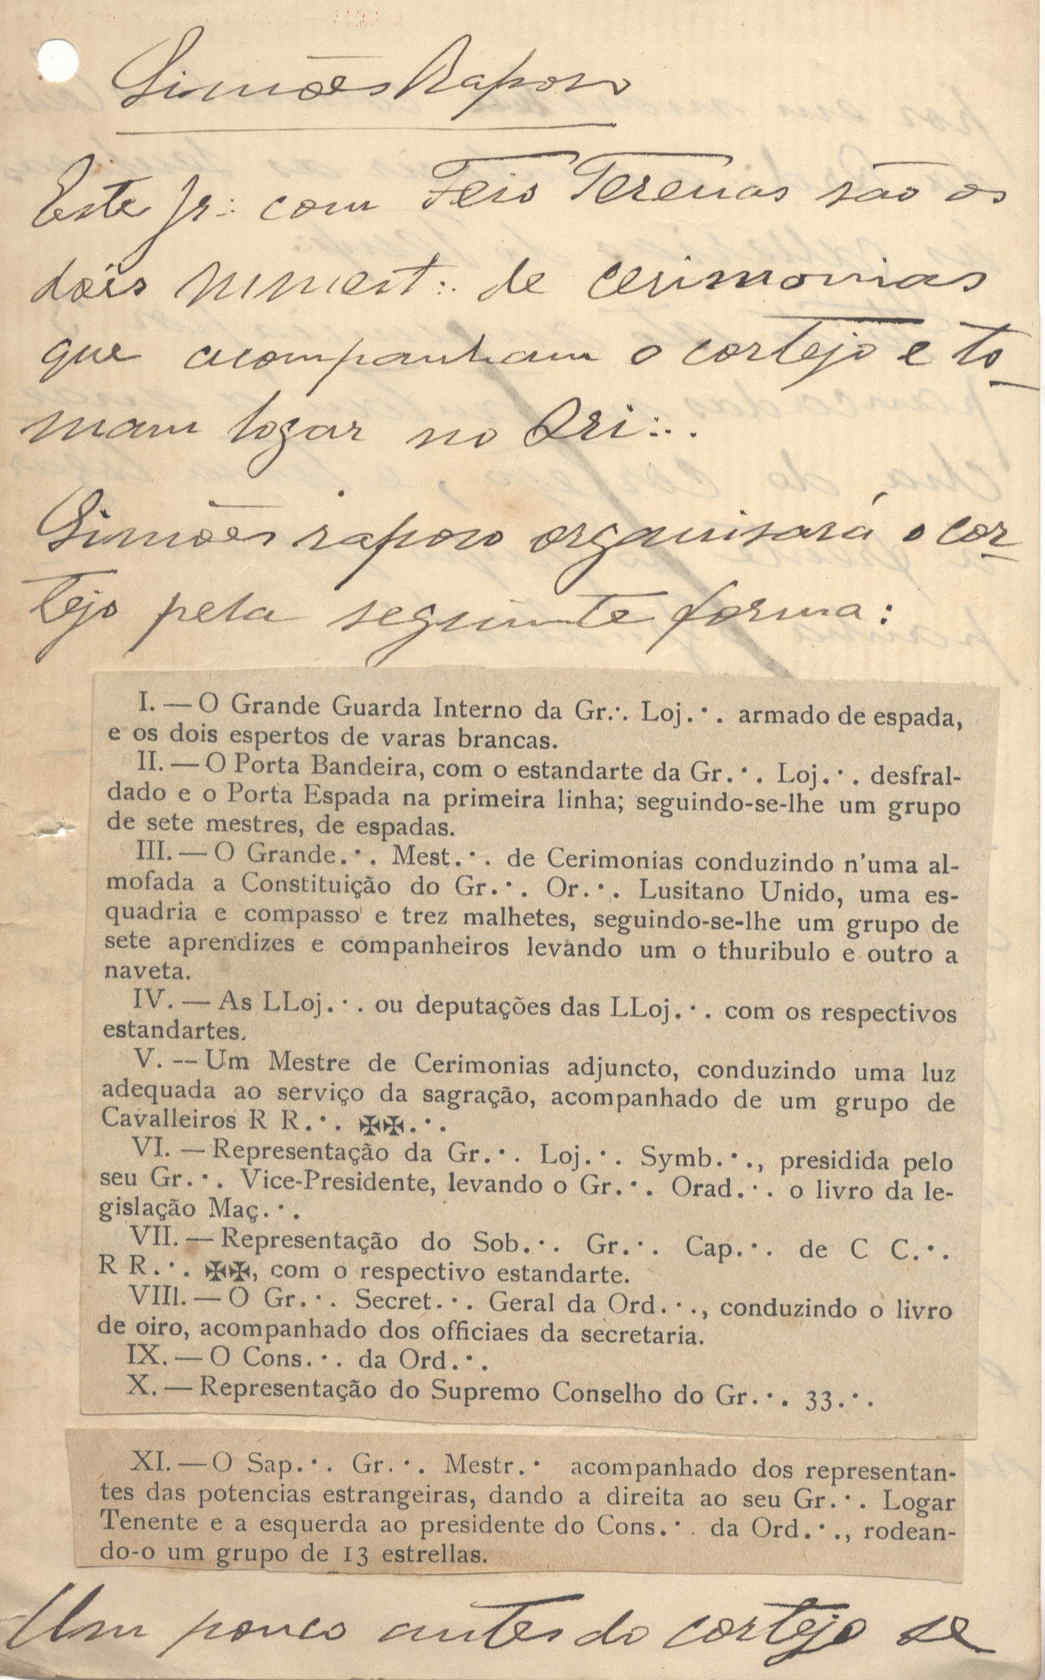 Simões Raposo
Este Ir∴ com Feio Terenas são os
dois MMest∴ de cerimonias
que acompanham o cortejo e to-
mam logar no Ori∴.
Simões raposo organisará o cor-
tejo pela seguinte forma:
I. — O Grande Guarda Interno da Gr.·. Loj.·. armado de espada,
e os dois espertos de varas brancas.
II. — O Porta Bandeira, com o estandarte da Gr.·. Loj.·. desfral-
dado e o Porta Espada na primeira linha; seguindo-se-lhe um grupo
de sete mestres, de espadas.
III. — O Grande.·. Mest.·. de Cerimonias conduzindo n'uma al-
mofada a Constituição do Gr.·. Or.·. Lusitano Unido, uma es-
quadria e compasso e trez malhetes, seguindo-se-lhe um grupo de
sete aprendizes e companheiros levando um o thuribulo e outro a
naveta.
IV. — As LLoj.·. ou deputações das LLoj.·. com os respectivos
estandartes.
V. -- Um Mestre de Cerimonias adjuncto, conduzindo uma luz
adequada ao serviço da sagração, acompanhado de um grupo de
Cavalleiros R R.·. ✠✠.·.
VI. — Representação da Gr.·. Loj.·. Symb.·., presidida pelo
seu Gr.·. Vice-Presidente, levando o Gr.·. Orad.·. o livro da le-
gislação Maç.·.
VII. — Representação do Sob.·. Gr.·. Cap.·. de C C.·.
R R.·. ✠✠, com o respectivo estandarte.
VIII. — O Gr.·. Secret.·. Geral da Ord.·., conduzindo o livro
de oiro, acompanhado dos officiaes da secretaria.
IX. — O Cons.·. da Ord.·.
X. — Representação do Supremo Conselho do Gr.·. 33.·.
XI. — O Sap.·. Gr.·. Mestr.· acompanhado dos representan-
tes das potencias estrangeiras, dando a direita ao seu Gr.·. Logar
Tenente e a esquerda ao presidente do Cons.·. da Ord.·., rodean-
do-o um grupo de 13 estrellas.
Um pouco antes do cortejo se